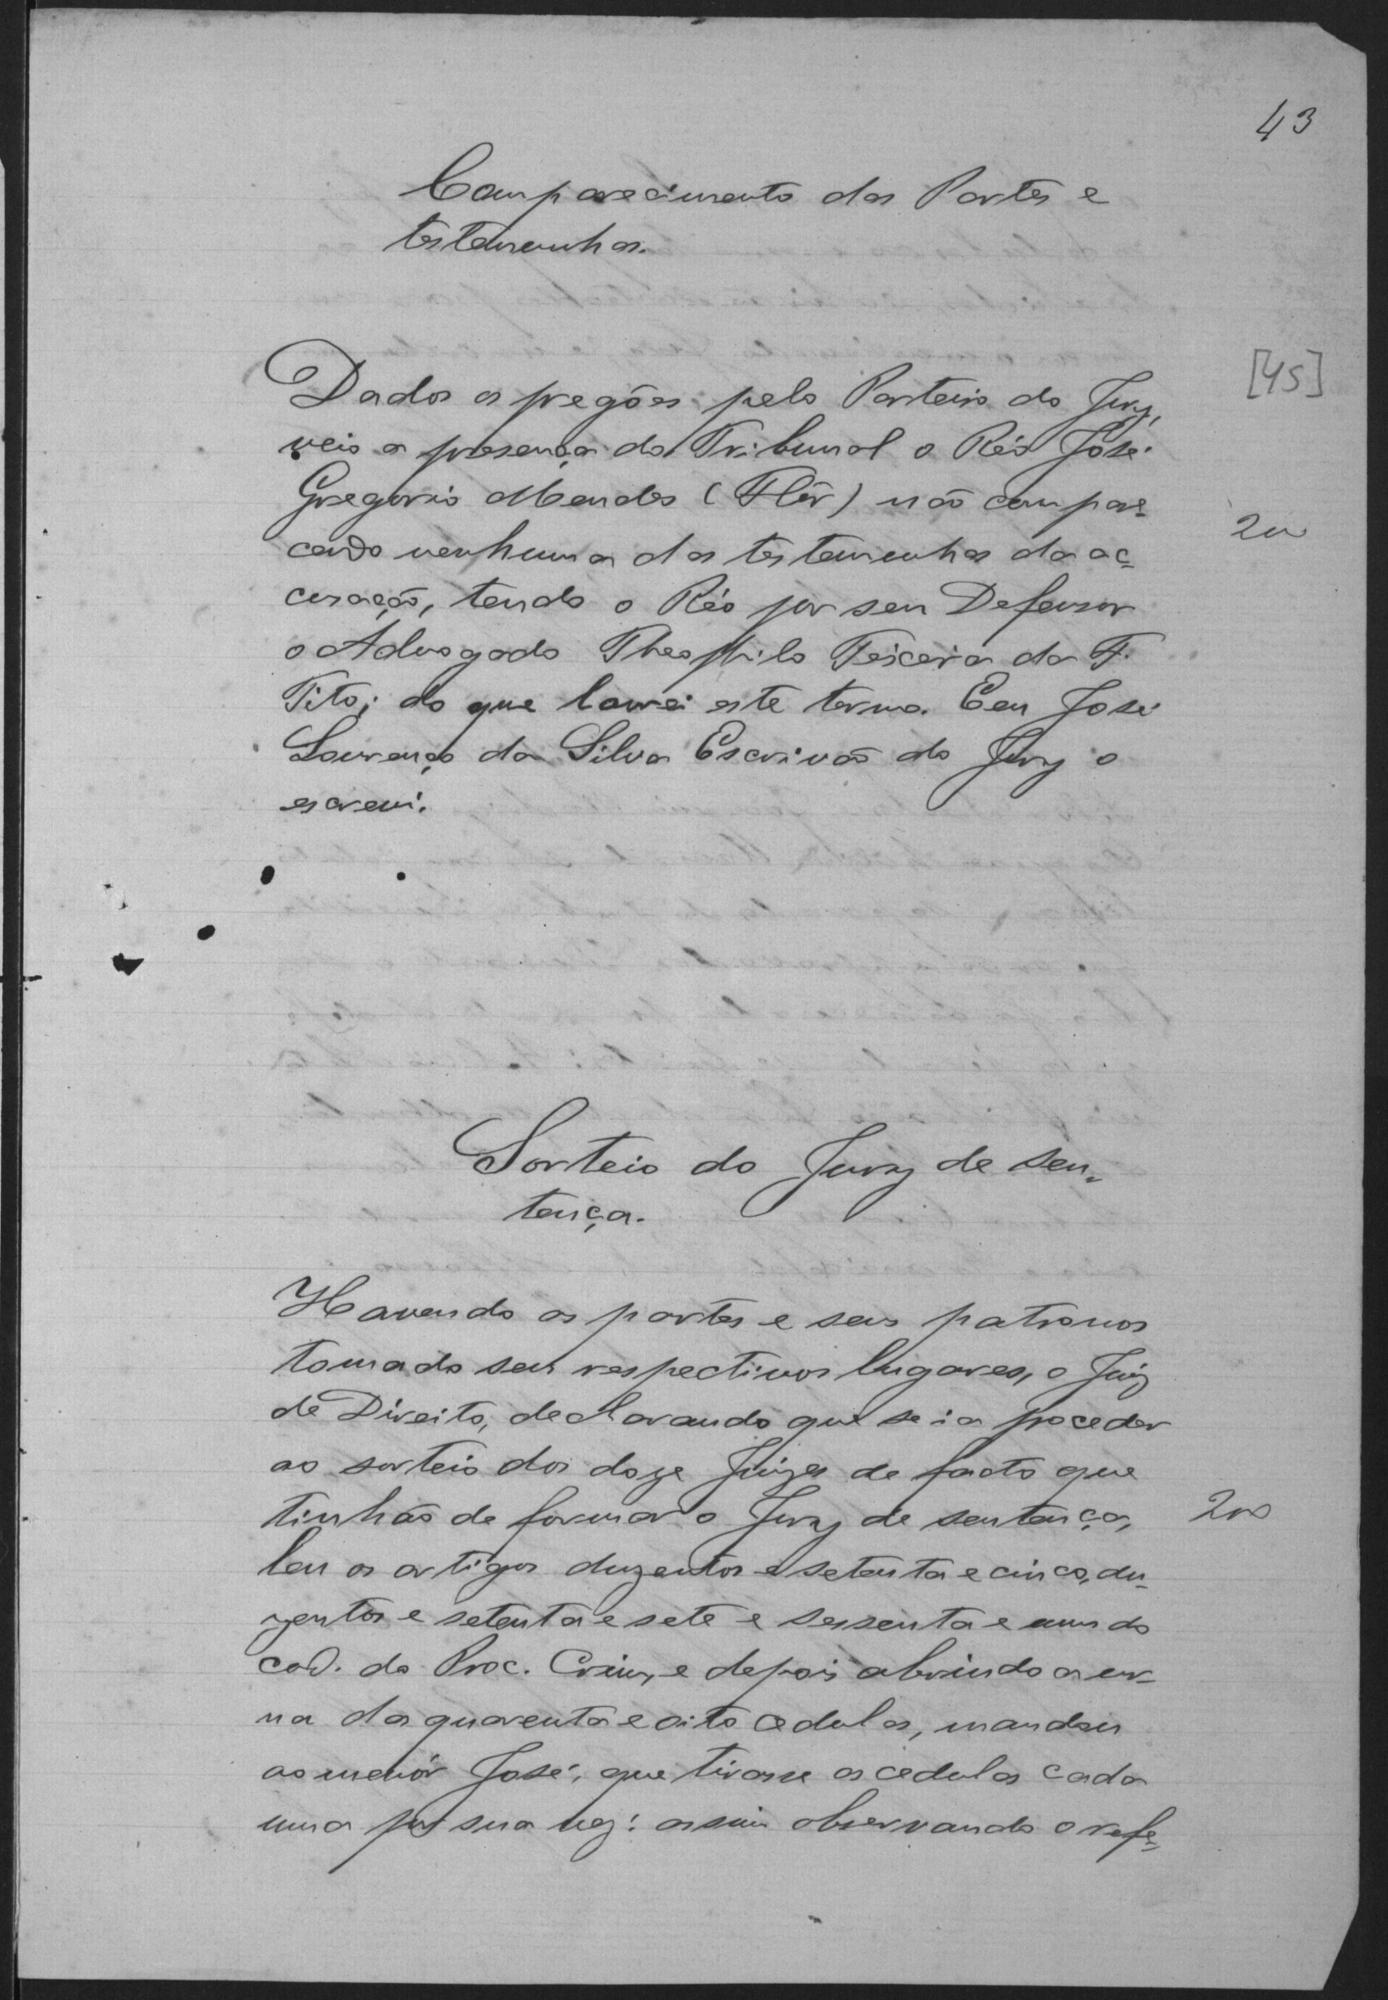 43
Comparecimento das Partes e
testemunhas.
[45]
Dados os pregões pelo Porteiro do Jury,
veio a presença do Tribunal o Réo José
Gregorio Mendes (Flôr) não compare-
cendo nenhuma das testemunhas da ac-
cusação, tendo o Réo por seu Defensor
200
o Advogado Theophilo Teixeira da F.
Tito; do que lavrei este termo. Eu José
Lourenço da Silva Escrivão do Jury o
escrevi.
Sorteio do Jury de sen-
tença.
Havendo as partes e seus patronos
tomado seus respectivos lugares, o Juiz
de Direito, declarando que se ia proceder
ao sorteio dos doze Juizes de facto que
tinhão de formar o Jury de sentença,
200
leu os artigos duzentos e setenta e cinco, du-
zentos e setenta e sete e sessenta e um do
cod. do Proc. Crim, e depois abrindo a ur-
na das quarenta e oito cedulas, mandou
ao menór José, que tirasse as cedulas cada
uma por sua vez: assim observando o refe-